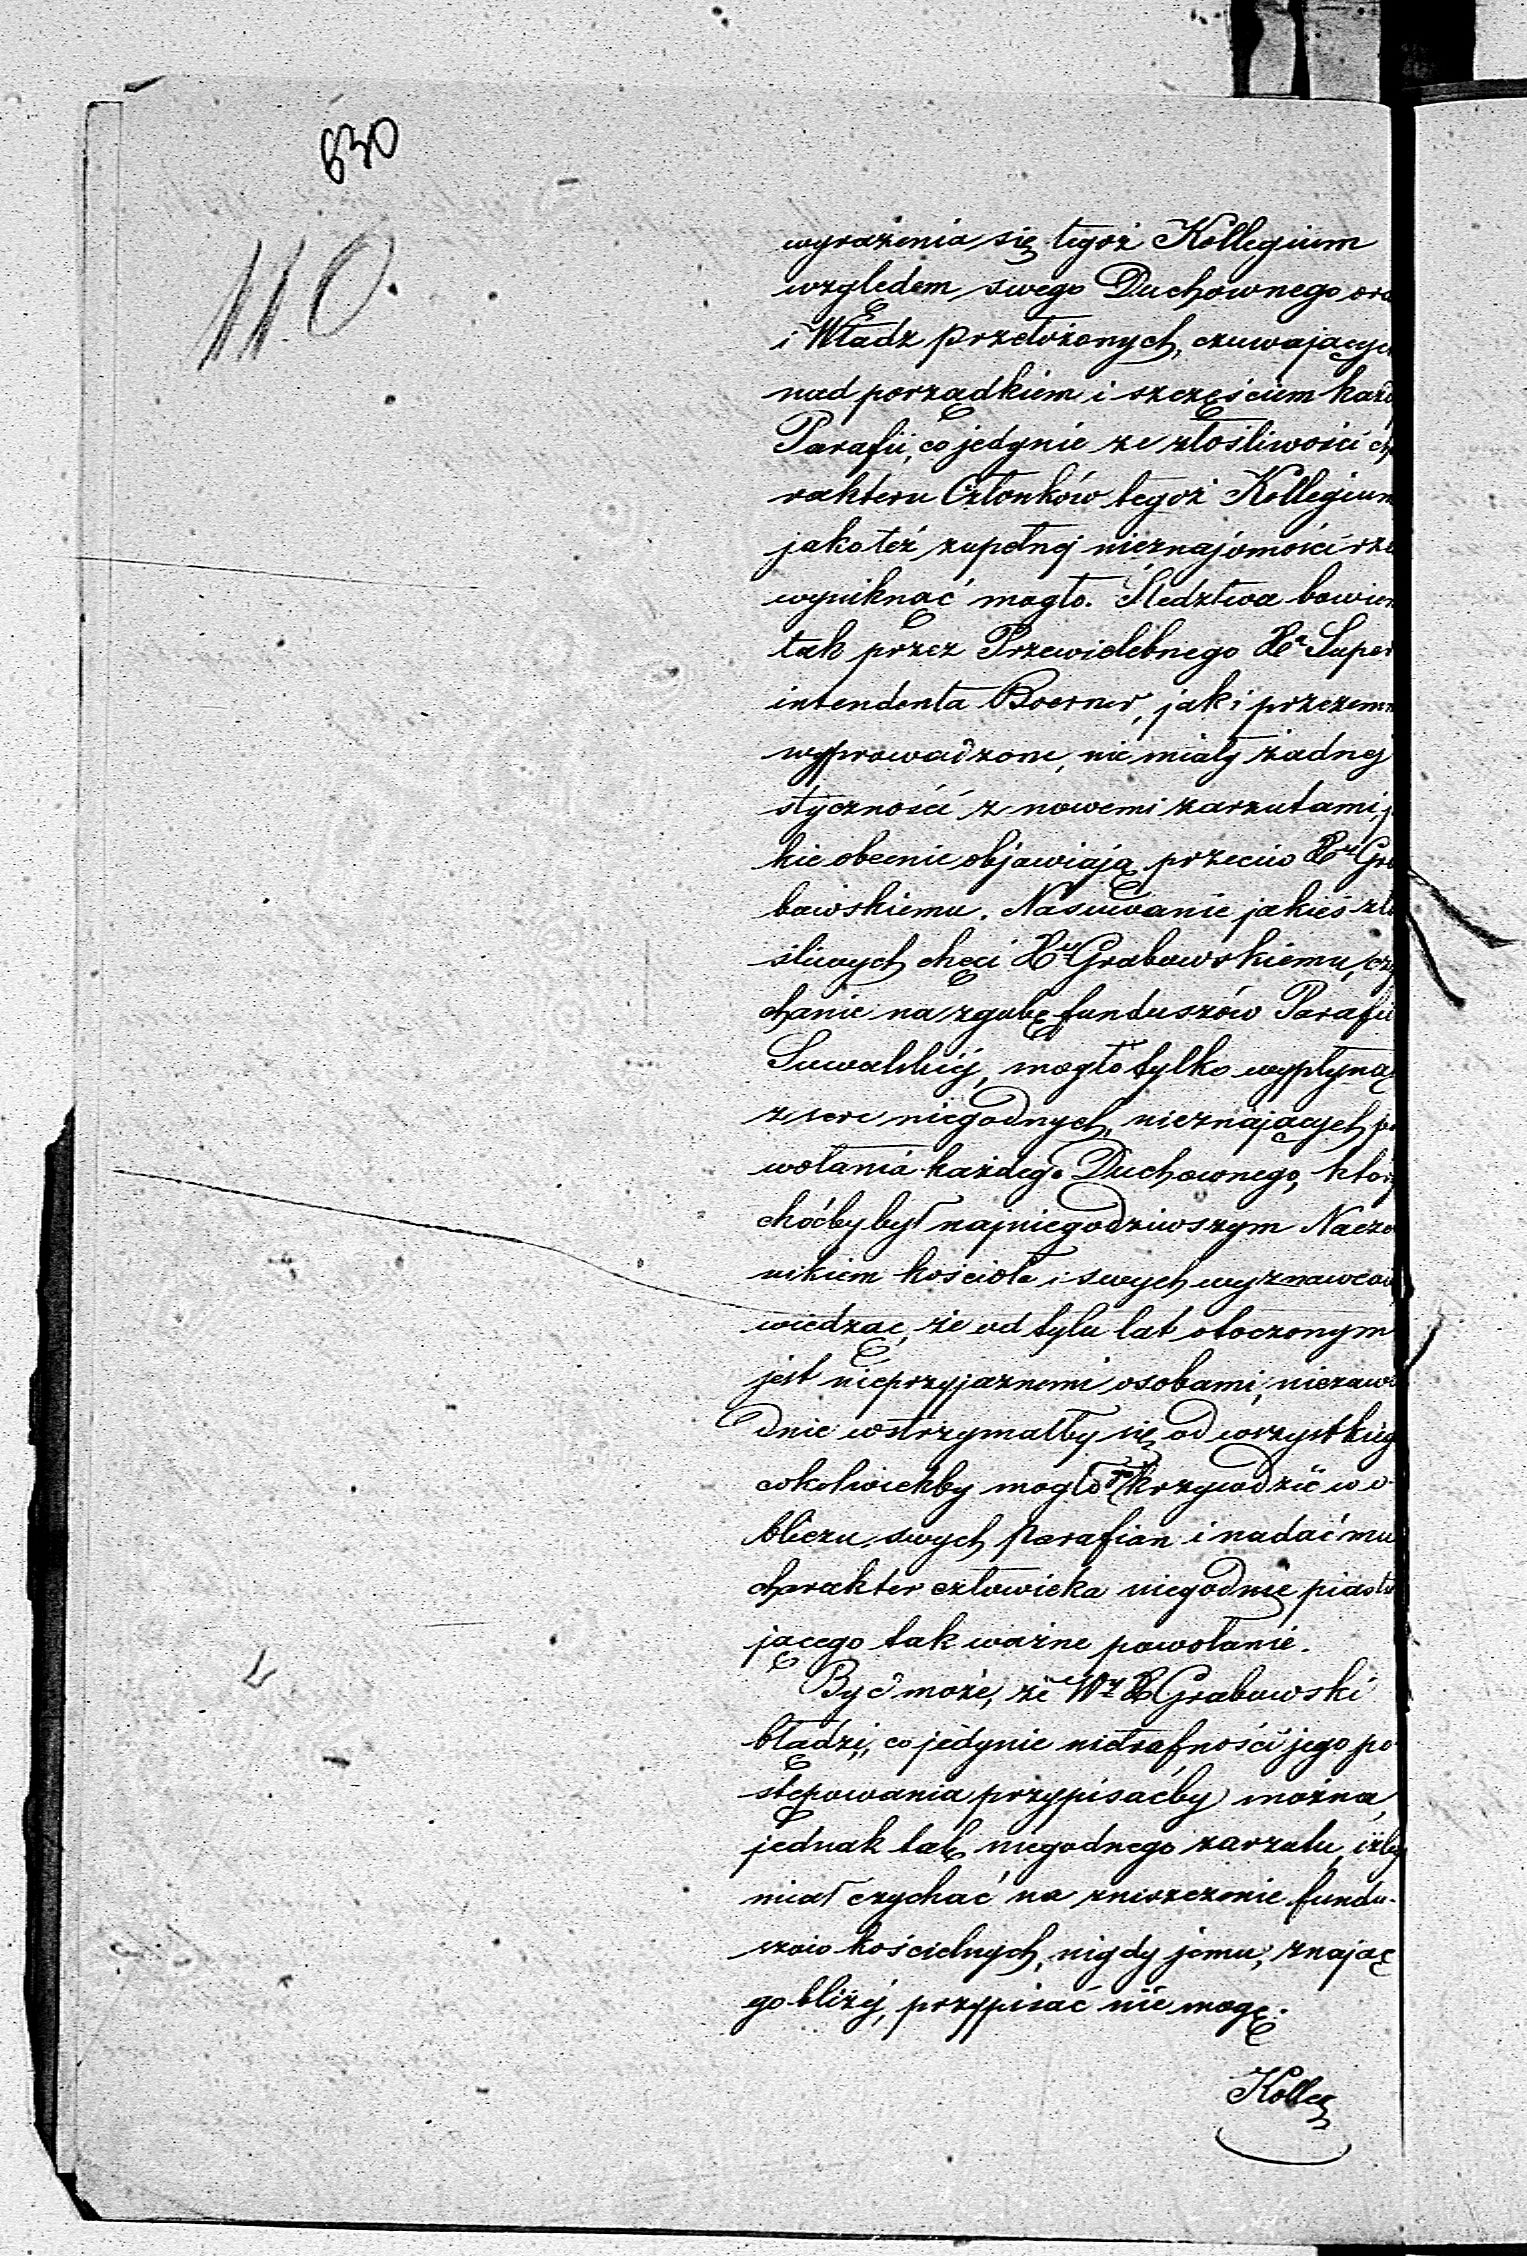 630
110.
wyrażenia się tegoż Kollegium
względem swego Duchownego ora
i Władz przełożonych, czuwających
nad porządkiem i szczęściem każd
Parafii, co jedynie ze złośliwości ch
rakteru Członków tegoż Kollegium
jakoteż zupełnej nieznajomości rze
wyniknąć mogło. Śledztwa bowiem
tak przez Przewielebnego Xa Super
intendenta Boerner, jak i przezemn
wyprowadzone, nie miały żadnej
styczności z nowemi zarzutami, j
kie obecnie objawiają przeciw Xu Gra
bowskiemu. Nasuwanie jakieś zło
śliwych chęci Xu Grabowskiemu, czy
chanie na zgubę funduszów Parafii
Suwalskiéj, mogło tylko wypłynąć
z serc niegodnych, nieznających po
wołania każdego Duchownego, który
choćby był najniegodziwszym Nacze
nikiem kościoła i swych wyznawców
wiedząc, że od tylu lat otoczonym
jest nieprzyjaznemi osobami, niezawo
dnie wstrzymałby się od wszystkiego
cokolwiekby mogło go krzywdzić w o-
bliczu swych Parafian i nadać mu
charakter człowieka niegodnie piastu
jącego tak ważne powołanie.
Być może, że Wy X Grabowski
błądzi, co jedynie nietrafności jego po
stępowania przypisaćby można,
jednak tak niegodnego zarzutu, iżby
miał czychać na zniszczenie fundu-
szów kościelnych, nigdy jemu, znając
go bliżéj, przypisać nie mogę.